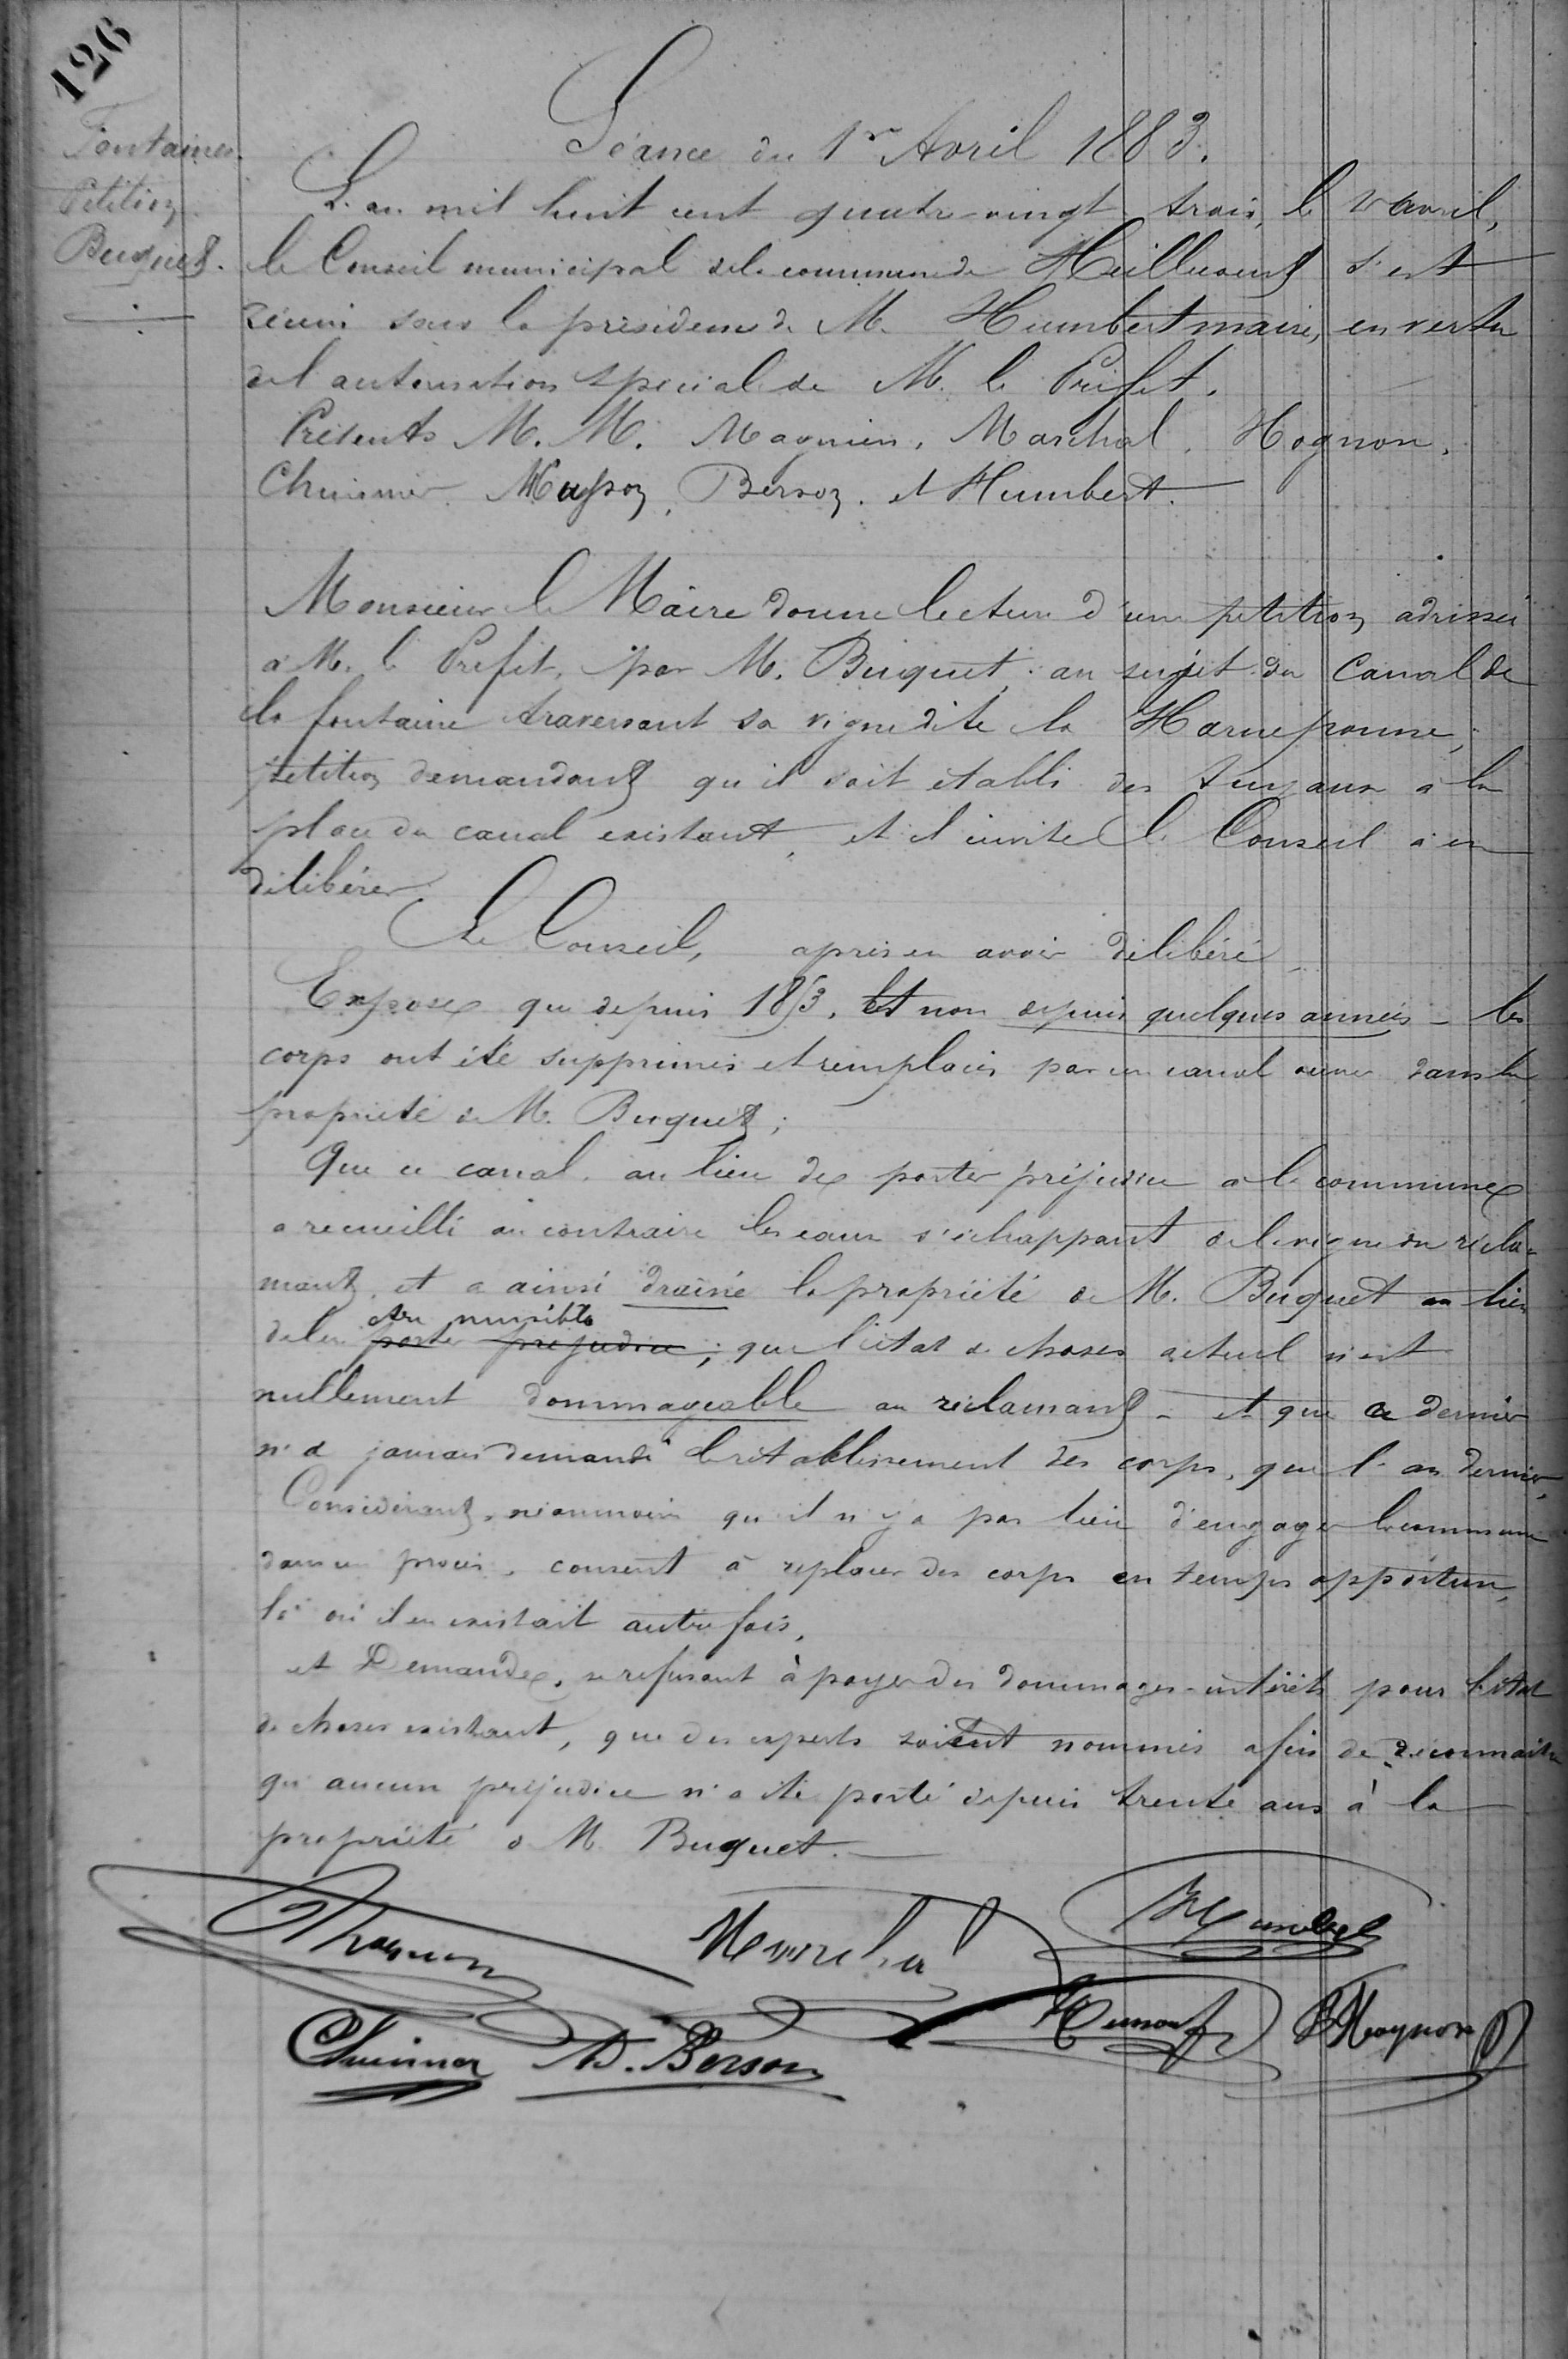 126
Fontaines.
Petition
Buquet.
Séance du 1er Avril 1883.
L'an mil huit cent quatre-vingt trois, le 1er avril,
le Conseil municipal de la commune de Heillecourt s'est
réuni sous la présidence de M. Humbert maire, en vertu
de l'autorisation spécial de M. le Préfet.
Présents M. M. Magnien, Marchal, Hognon,
Chuinier, Masson, Berson, et Humbert.
Monsieur le Maire donne lecture d'une petition adressée
à M. le Prefet, par M. Buquet, au sujet du Canal de
la fontaine traversant sa vigne dite la
petition demandant qu'il soit établi des tuyaux à la
place du canal existant, et il invite le Conseil à en
délibérer.
Le Conseil, après en avoir délibéré
Expose que depuis 1853, et non depuis quelques années - les
corps ont été supprimés et remplacés par un canal dans la
propriété de M. Buquet;
Que ce canal, au lieu de porter préjudice à la commune
a recueilli au contraire les eaux s'échappant de la vigne du récla-
mant, et a ainsi drainé la propriété de M. Buquet au lieu
être nuisible
de lui porter prejudice; que l'état de choses actuel n'est
nullement dommageable au réclamant - et que ce dernier
n'a jamais demandé le rétablissement des corps, que l'an dernier,
Considérant, néanmoins qu'il n'y a pas lieu d'engager la commune
dans un procès, consent à replacer des corps en temps opportun,
là où il en existait autrefois,
et Demande, se refusant à payer des dommages-intérêts pour l'état
de choses existant, que des experts soient nommés afin de reconnaître
qu'aucun préjudice n'a été porté depuis trente ans à la
propriété de M. Buquet.
Marchal
Humbert
Chuinier D. Berson Hognon